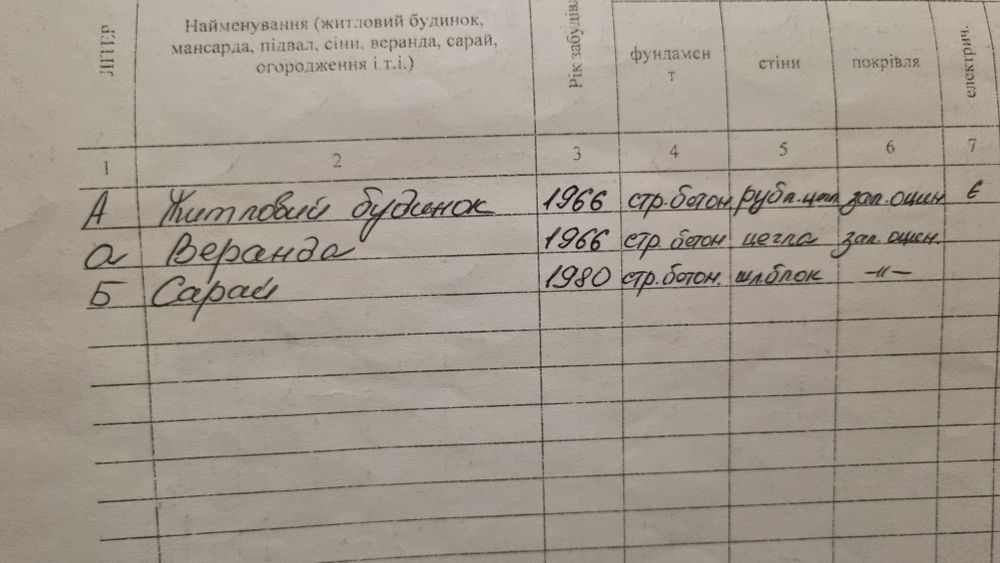 ЛІТЕР
Найменування (житловий будинок,
мансарда, підвал, сіни, веранда, сарай,
огородження і т.і.)
Рік забудів
фундамен
т
стіни
покрівля
електрич.
1 2 3 4 5 6 7
А Житловий будинок 1966 стр.бетон рубл.цегл зал.оцин Є
а Веранда 1966 стр. бетон цегла зал. оцин.
Б Сарай 1980 стр.бетон. шлблок -"-